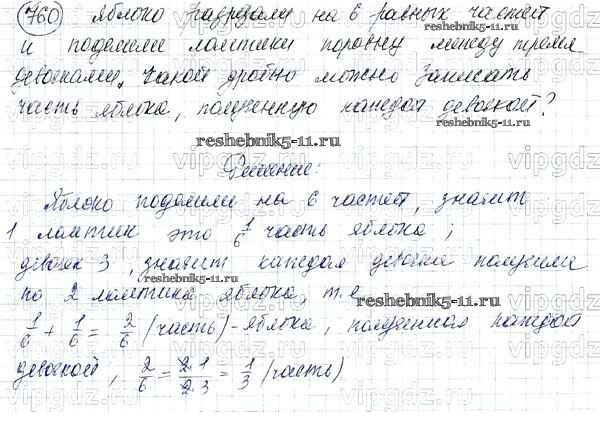 760 Яблоко разрезали на 6 равных частей
и поделили ломтики поровну между тремя
девочками. Какой дробью можно записать
часть яблока, полученную каждой девочкой?
reshebnik5-11.ru
reshebnik5-11.ru
Решение:
Яблоко поделили на 6 частей, значит
1 ломтик это 1/6 часть яблока;
девочек 3, значит каждая девочка получила
по 2 ломтика яблока, т.е.
reshebnik5-11.ru
1/6 + 1/6 = 2/6 (часть) - яблока, полученная каждой
девочкой, 2/6 = 2·1/2·3 = 1/3 (часть)